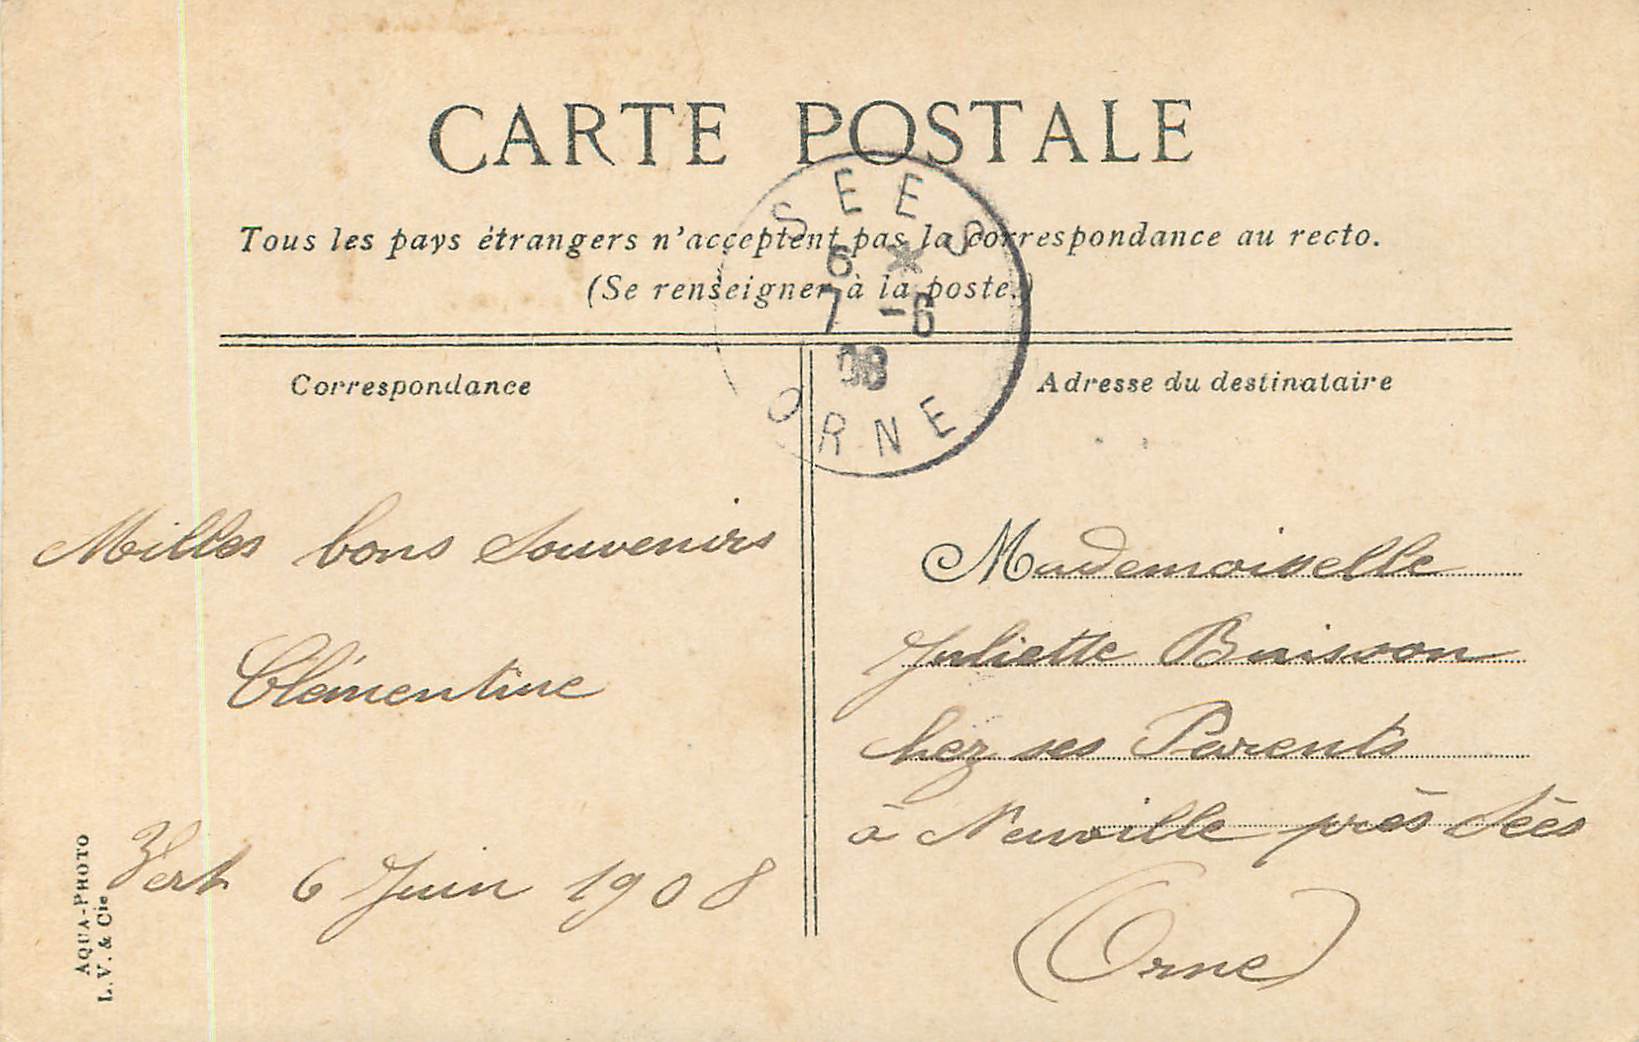 CARTE POSTALE
Tous les pays étrangers n'acceptent pas la correspondance au recto.
(Se renseigner à la poste.)
SEES
6 *
7 -6
08
ORNE
Correspondance
Milles bons souvenirs
Clémentine
Vert 6 Juin 1908
AQUA-PHOTO
L. V. & Cie
Adresse du destinataire
Mademoiselle
Juliette Buisson
chez ses Parents
à Neuville près Sées
(Orne)